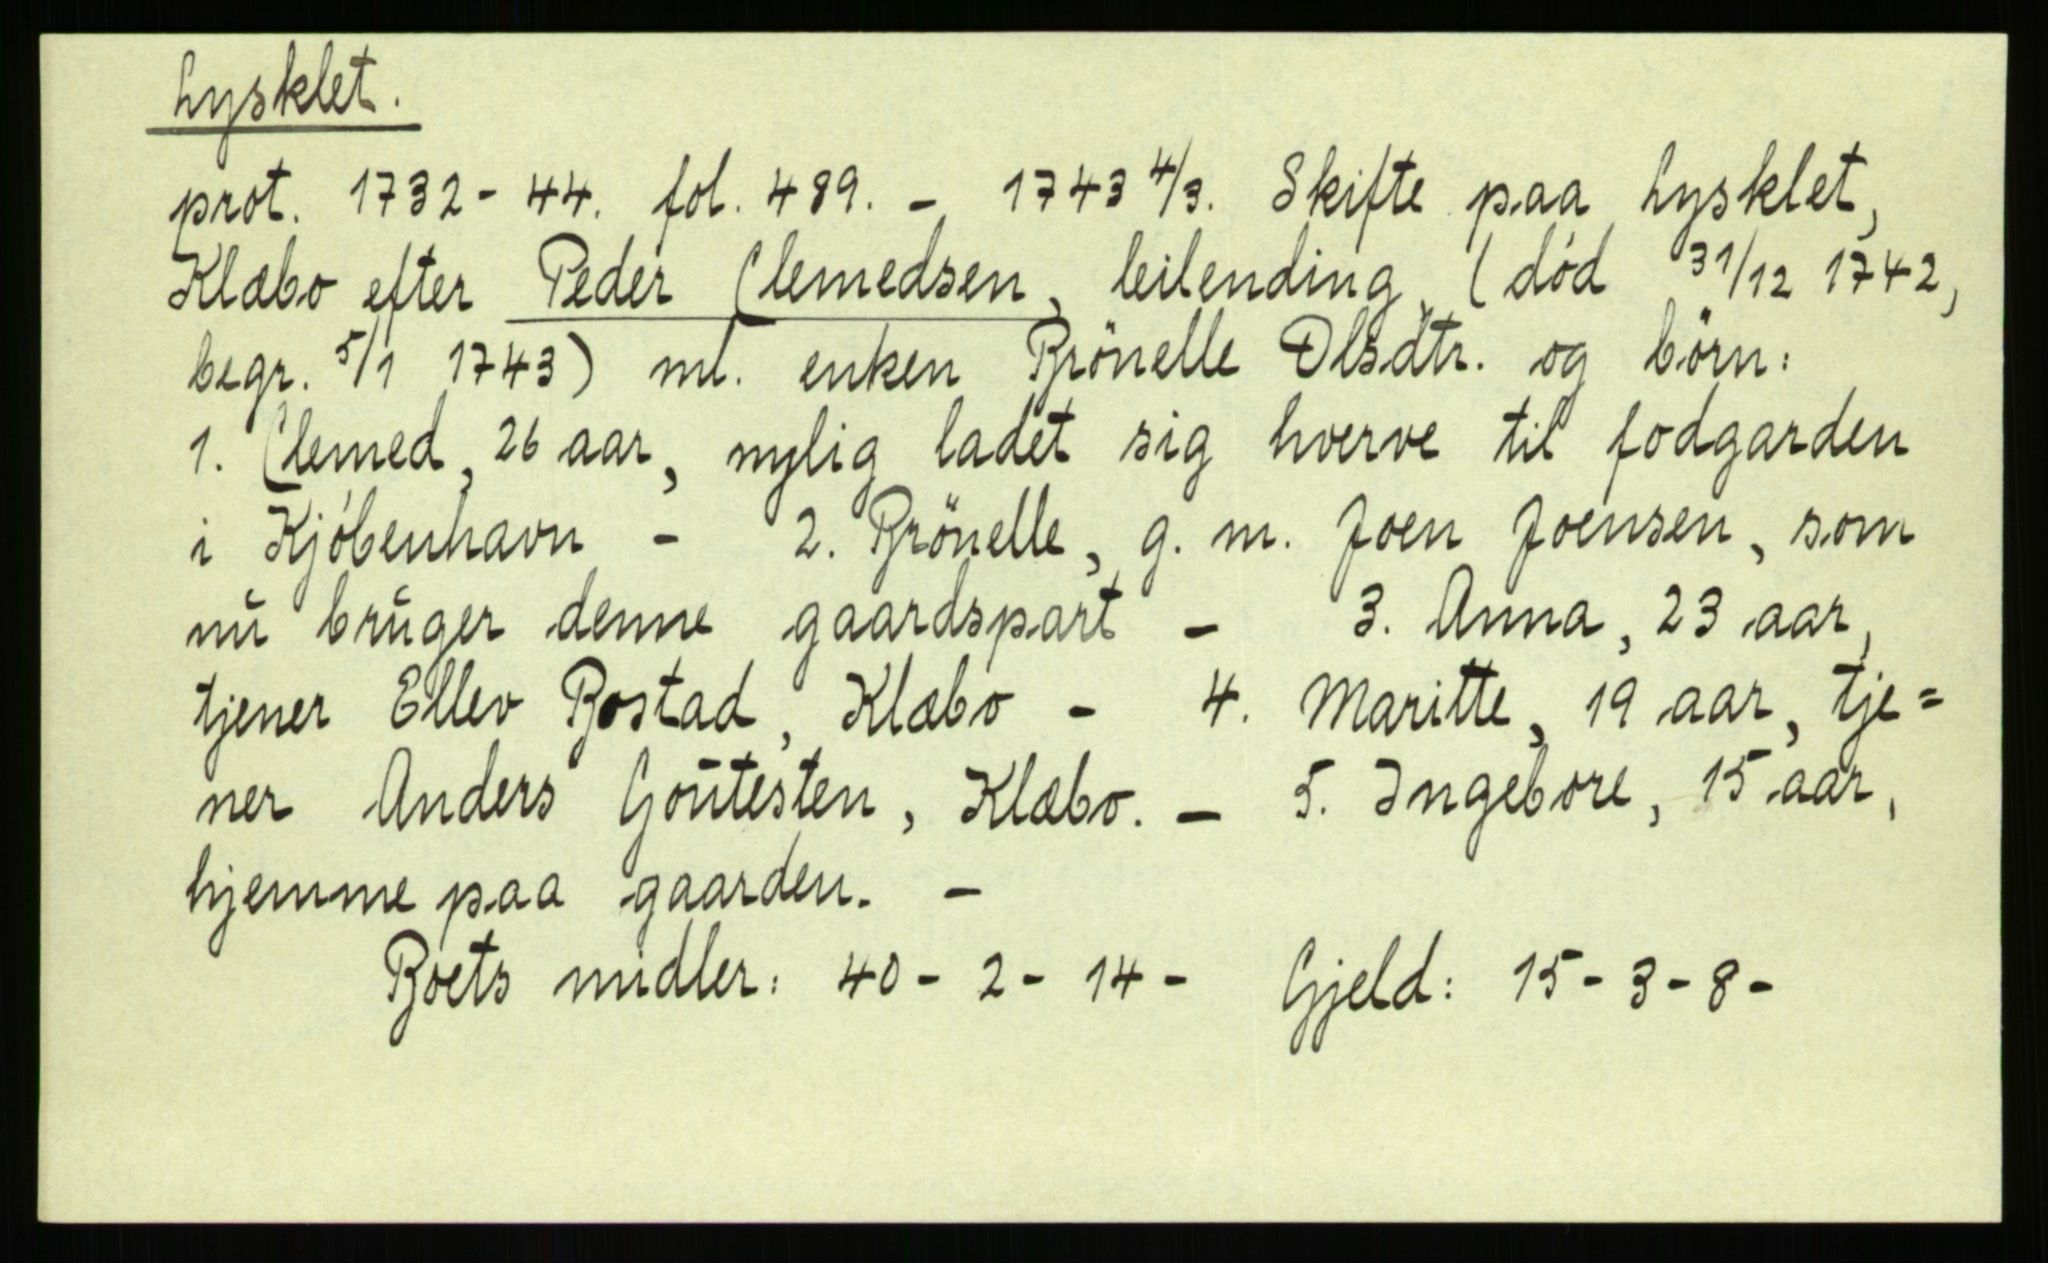 Lysklet.
prot. 1732-44. fol. 489. - 1743 4/3. Skifte paa Lysklet,
Klæbo efter Peder Clemedsen, leilending, (død 31/12 1742,
begr. 5/1 1743) ml. enken Brönelle Olsdtr. og börn:
1. Clemed, 26 aar, nylig ladet sig hverve til fodgarden
i Kjóbenhavn - 2. Brönelle, g. m. Joen Joensen, som
nu bruger denne gaardspart - 3. Anna, 23 aar,
tjener Ellev Bostad, Klæbo - 4. Maritte, 19 aar, tje=
ner Anders Goutesten, Klæbo. - 5. Ingebore, 15 aar,
hjemme paa gaarden. -
Boets midler: 40 - 2 - 14 - Gjeld: 15 - 3 - 8 -